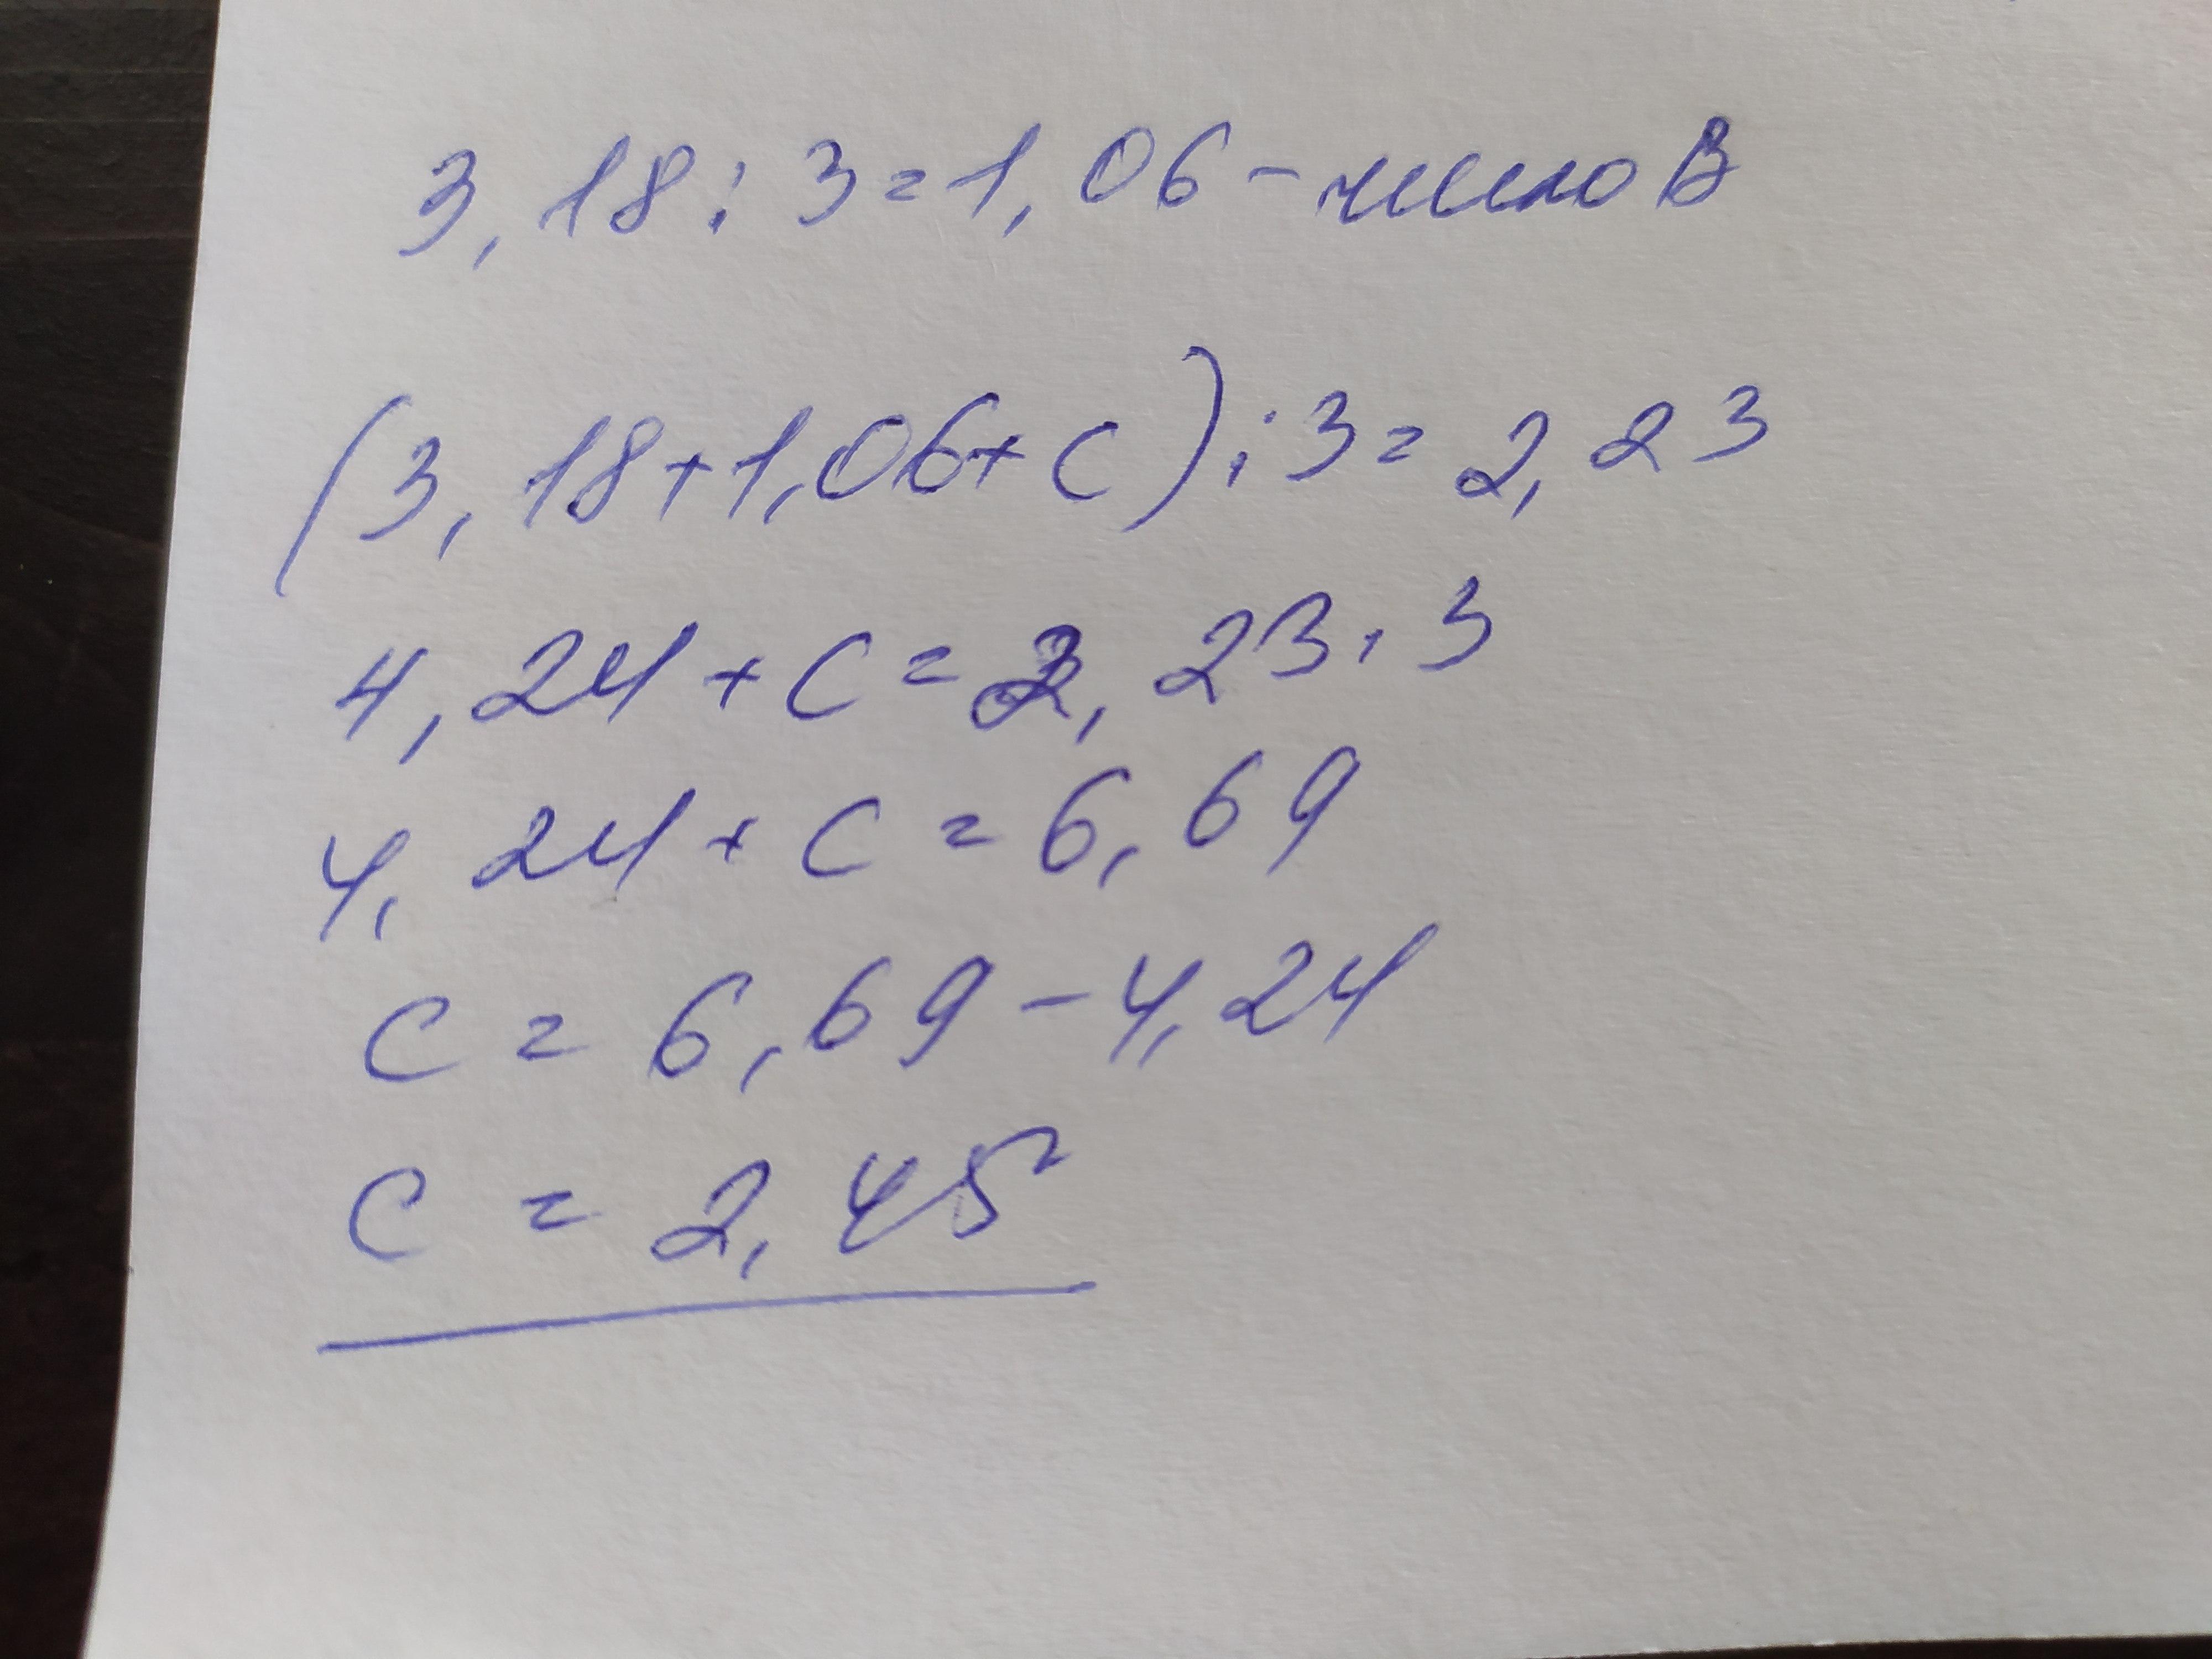 3,18:3=1,06-число В
(3,18+1,06+с):3=2,23
4,24+с=2,23·3
4,24+с=6,69
с=6,69-4,24
с=2,45